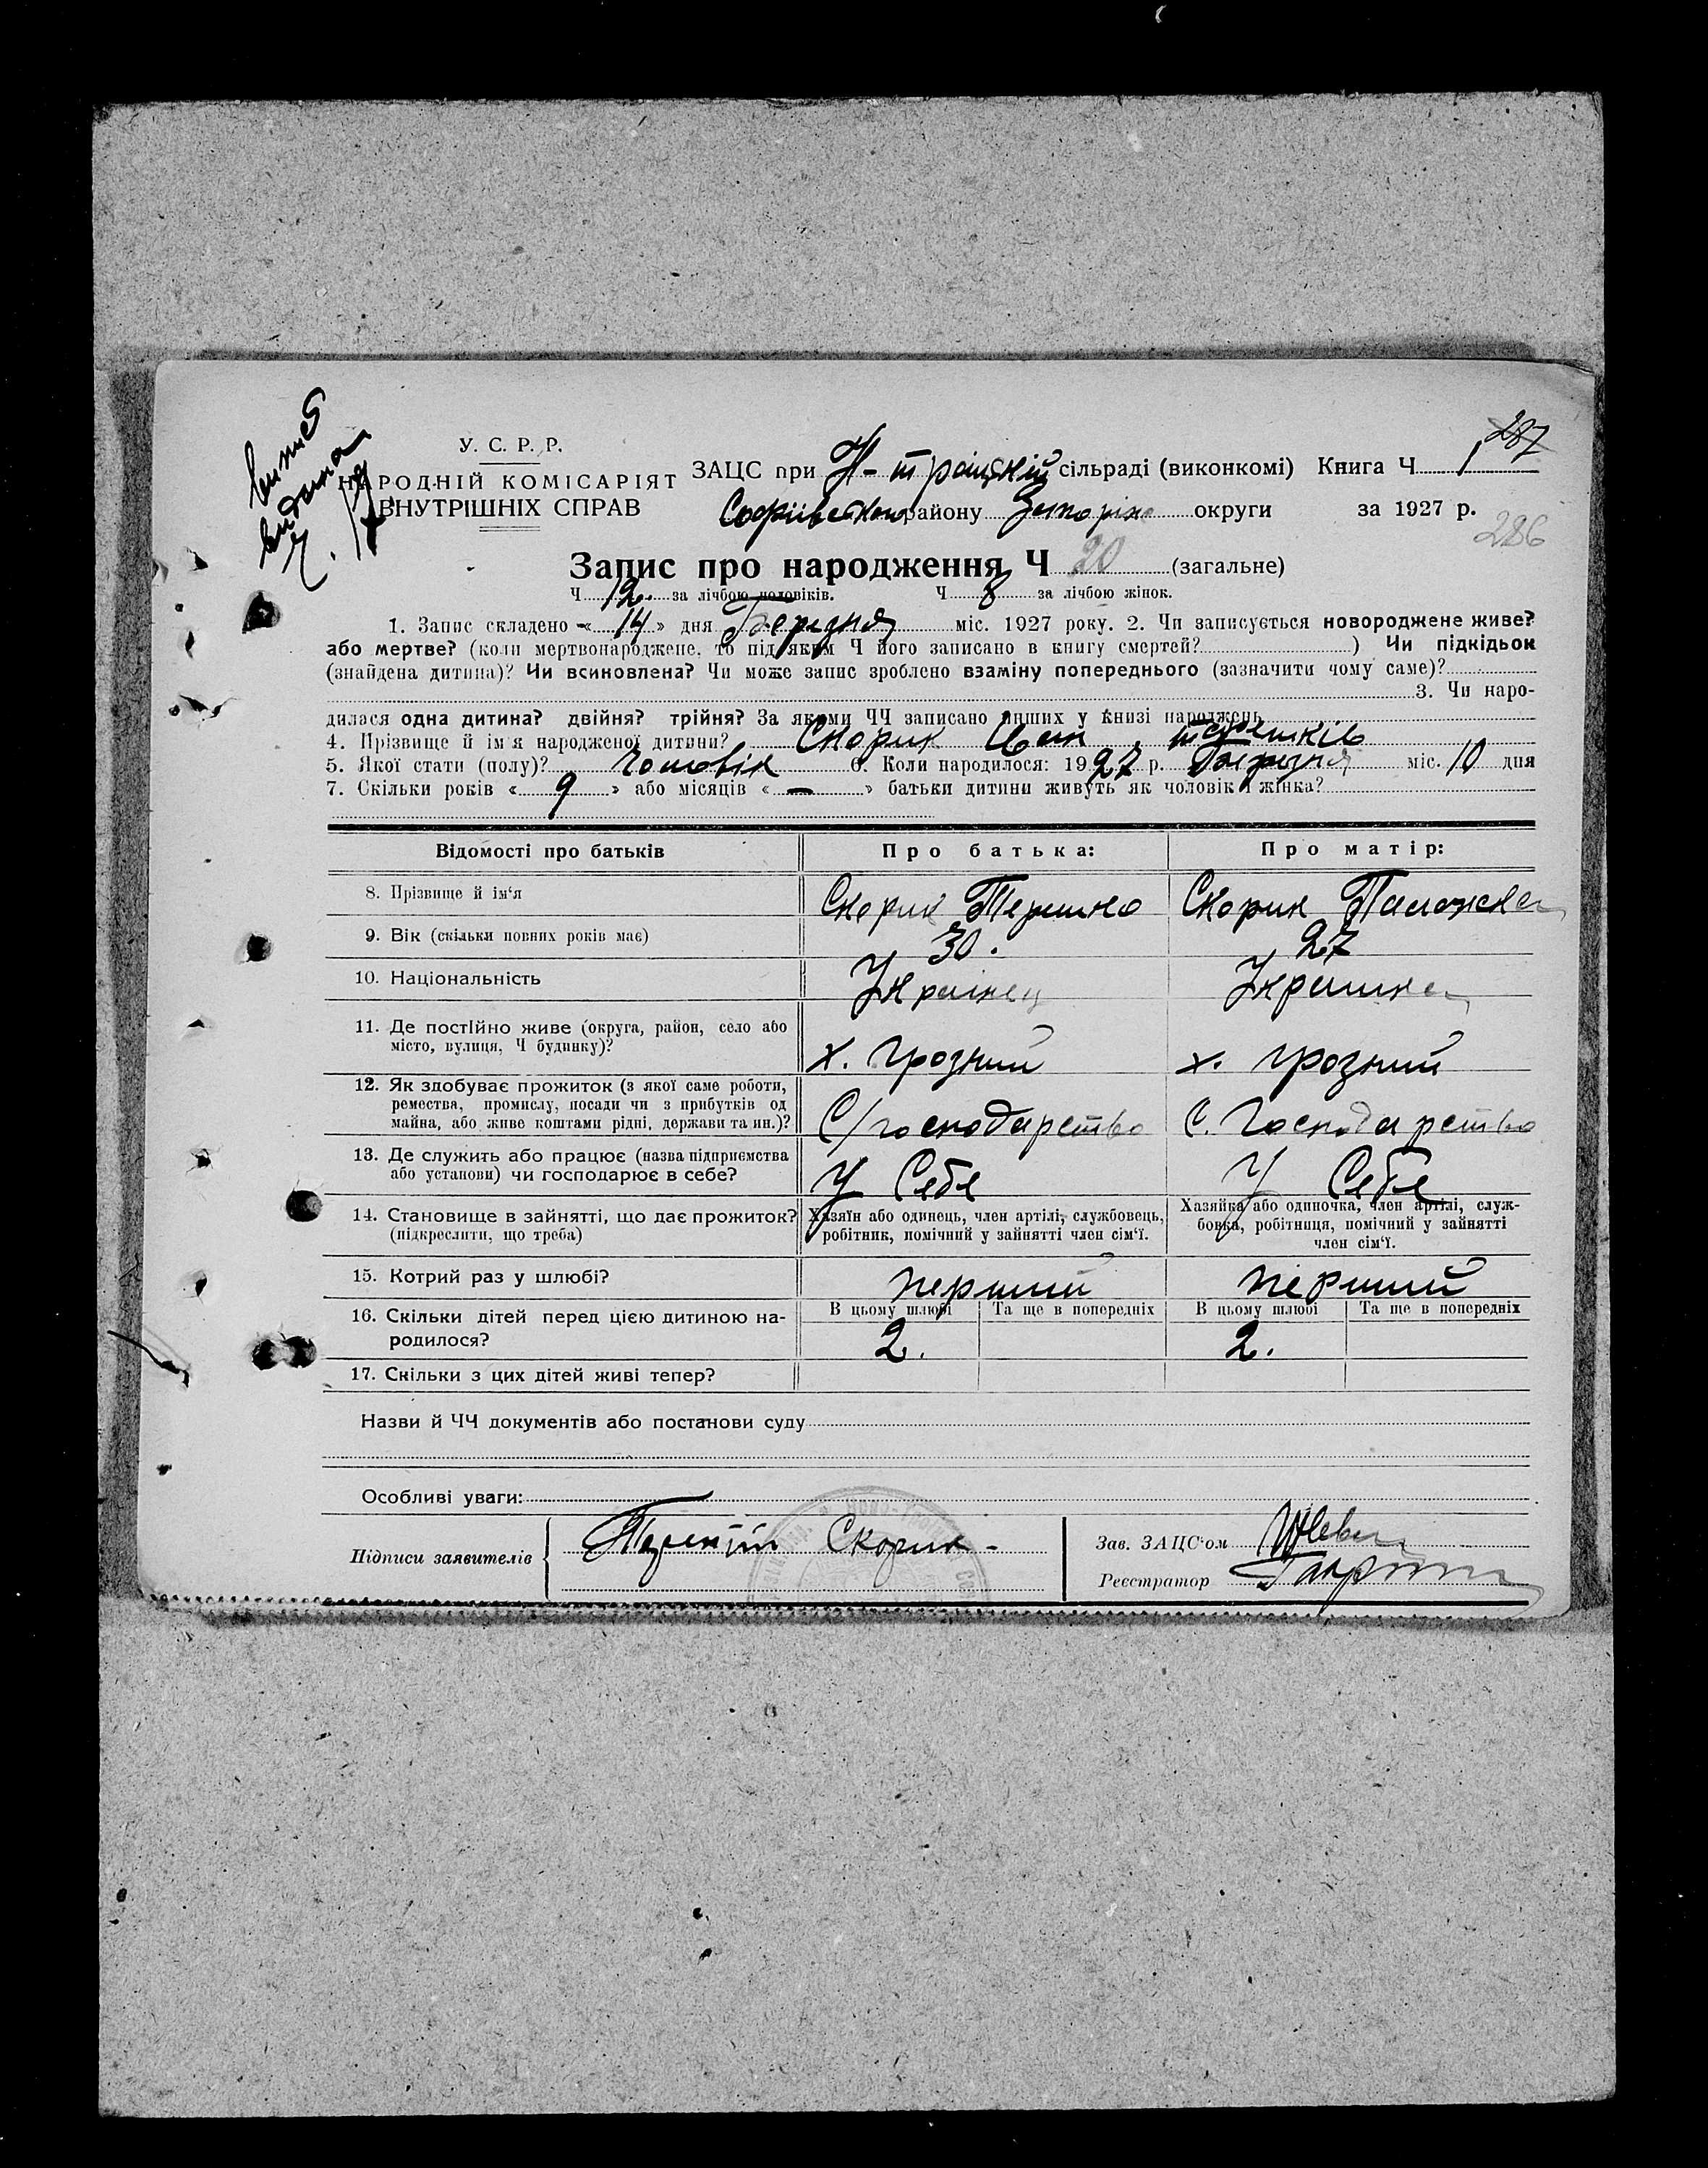 випис
видана
287
У. С. Р. Р.
НАРОДНІЙ КОМІСАРІЯТ
ВНУТРІШНІХ СПРАВ
ЗАЦС при Н-троіцкій сільраді (виконкомі) Книга Ч 1
Софіївськом району Запоріж округи за 1927 р.
286
Запис про народження Ч 20 (загальне)
Ч 12. за лічбою чоловіків. Ч 8 за лічбою жінок.
1. Запис складено «14» дня Березня міс. 1927 року. 2. Чи записується новороджене живе?
або мертве? (коли мертвонароджене, то під яким Ч його записано в книгу смертей? ) Чи підкідьок
(знайдена дитина)? Чи всиновлена? Чи може запис зроблено взаміну попереднього (зазначити чому саме)?
3. Чи наро-
дилася одна дитина? двійня? трійня? За якоми ЧЧ записано инших у книзі народжень
4. Прізвище й ім'я народженої дитини? Скорик Іван
5. Якої стати (полу)? Чоловік 6. Коли народилося: 1927 р. Березня міс. 10 дня
7. Скільки років «9» або місяців «—» батьки дитини живуть як чоловік і жінка?
Відомості про батьків Про батька: Про матір:
8. Прізвище й ім'я Скорик Терешко Скорик Палажка
9. Вік (скільки повних років має) 30. 27
10. Національність Украінец Украинка
11. Де постійно живе (округа, район, село або
місто, вулиця, Ч будинку)? х. Грозний х. Грозний
12. Як здобуває прожиток (з якої саме роботи,
ремества, промислу, посади чи з прибутків од
майна, або живе коштами рідні, держави та ин.)? С/господарство С. Господарство
13. Де служить або працює (назва підприємства
або установи) чи господарює в себе? У Себе У Себе
14. Становище в зайнятті, що дає прожиток?
(підкреслити, що треба)
Хазяїн або одинець, член артілі, службовець,
робітник, помічний у зайнятті член сім'ї.
Хазяйка або одиночка, член артілі, служ-
бовка, робітниця, помічний у зайнятті
член сім'ї.
15. Котрий раз у шлюбі? перший перший
В цьому шлюбі Та ще в попередніх В цьому шлюбі Та ще в попередніх
16. Скільки дітей перед цією дитиною на-
родилося? 2. 2.
17. Скільки з цих дітей живі тепер?
Назви й ЧЧ документів або постанови суду
Особливі уваги:
Підписи заявителів Терентій Скорик
Зав. ЗАЦС'ом
Реєстратор